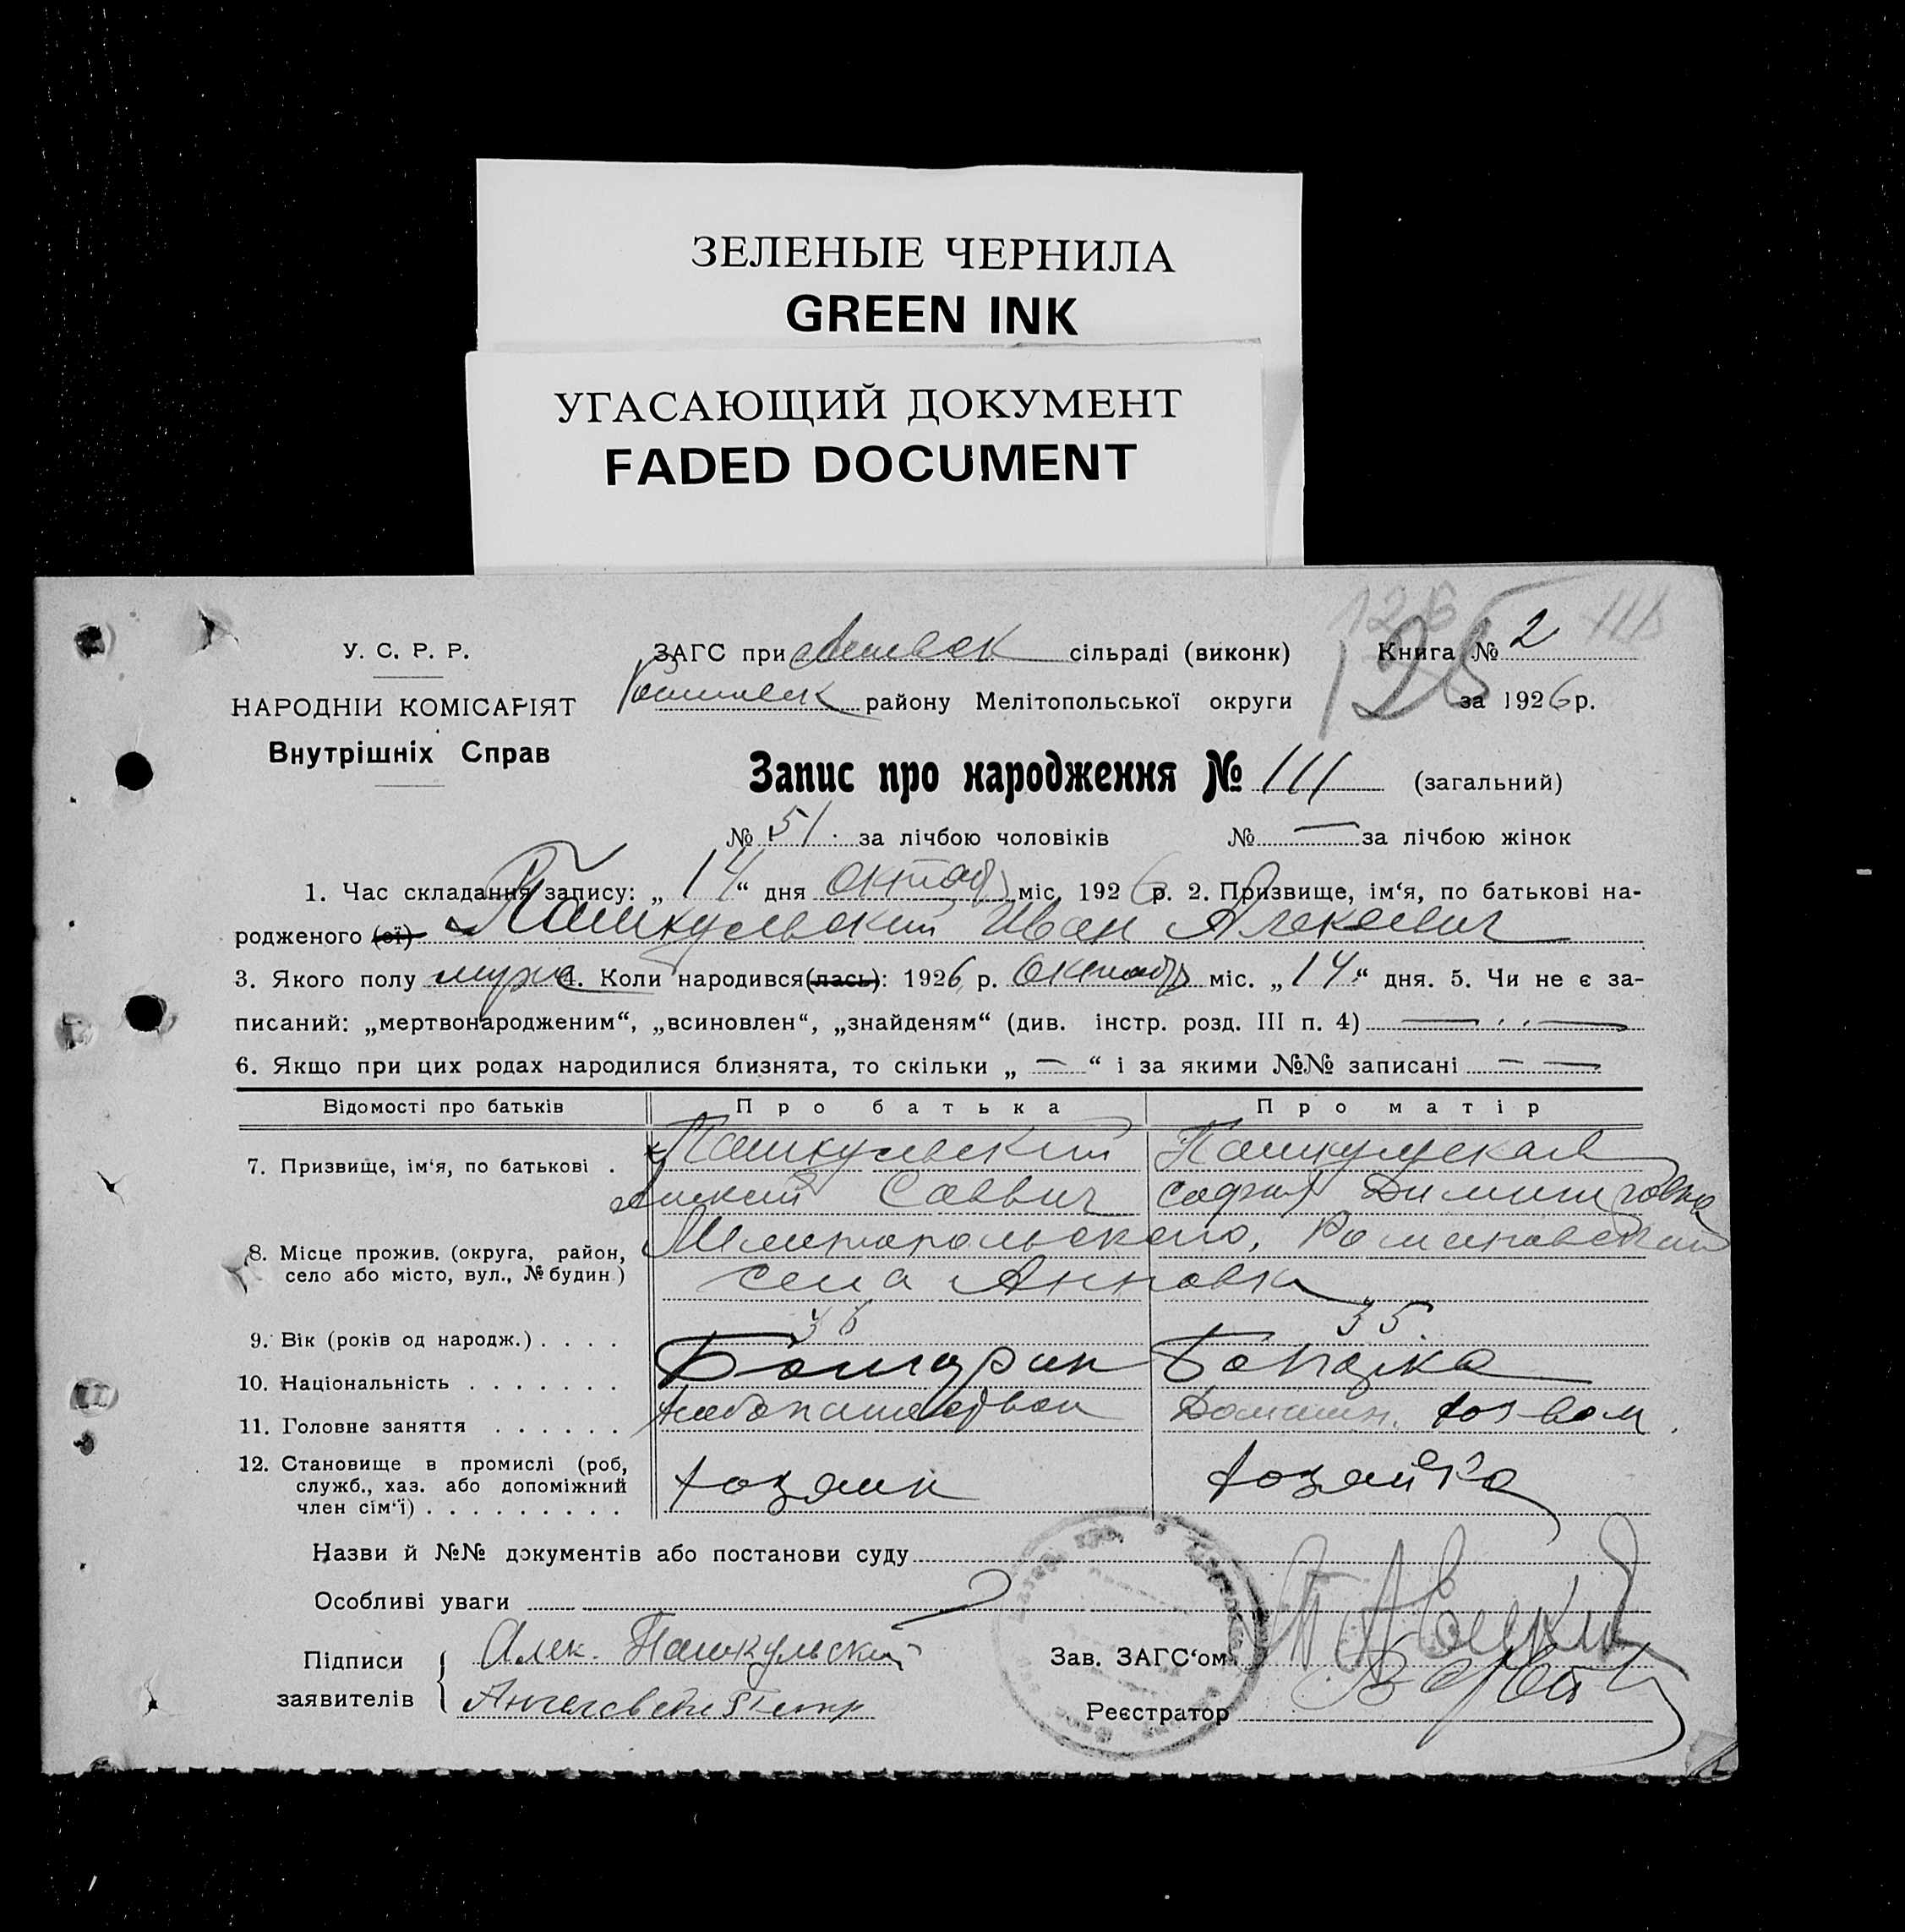 ЗЕЛЕНЫЕ ЧЕРНИЛА
GREEN INK
УГАСАЮЩИЙ ДОКУМЕНТ
FADED DOCUMENT
126 111
125
У. С. Р. Р.
НАРОДНІЙ КОМІСАРІЯТ
Внутрішніх Справ
ЗАГС при сільраді (виконк) Книга № 2
району Мелітопольської округи за 1926 р.
Запис про народження № 111 (загальний)
№ 51 за лічбою чоловіків № — за лічбою жінок
1. Час складання запису: „ 14 “ дня октяб міс. 1926 р. 2. Призвище, ім‘я, по батькові на-
родженого (ої) Пашкульский Иван Алексевич
3. Якого полу муже 4. Коли народився (лась): 1926 р. Октяб міс. „ 14 “ дня. 5. Чи не є за-
писаний: „мертвонародженим“, „всиновлен“, „знайденям“ (див. інстр. розд. III п. 4) —
6. Якщо при цих родах народилися близнята, то скільки „ — “ і за якими №№ записані — —
Відомості про батьків Про батька Про матір
7. Призвище, ім‘я, по батькові . Пашкульский Пашкульская
Алексей Саввич София Димитровна
8. Місце прожив. (округа, район, Мелитопольского, Романовский
село або місто, вул., № будин.) села Анновка
9. Вік (років од народж.) . . . . 36 35.
10. Національність . . . . . . . Болгарин Болгарка
11. Головне заняття . . . . . . Хлебопашество Домашн. хоз-вом
12. Становище в промислі (роб,
служб., хаз. або допоміжний хозяин хозяйка
член сім‘ї) . . . . . . . . .
Назви й №№ документів або постанови суду
Особливі уваги
Підписи Алек. Пашкульский Зав. ЗАГС‘ом
заявителів Петр
Реєстратор